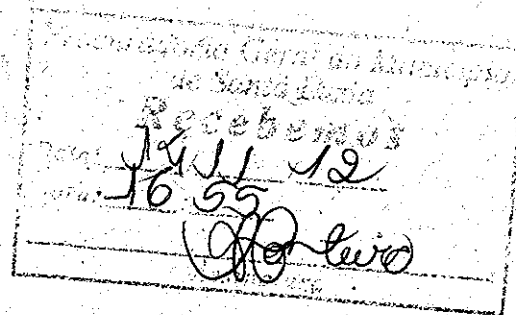 Procuradoria Geral do Município
de Santa Luzia
Recebemos
Data: 14 11 12
Hora: 16 55